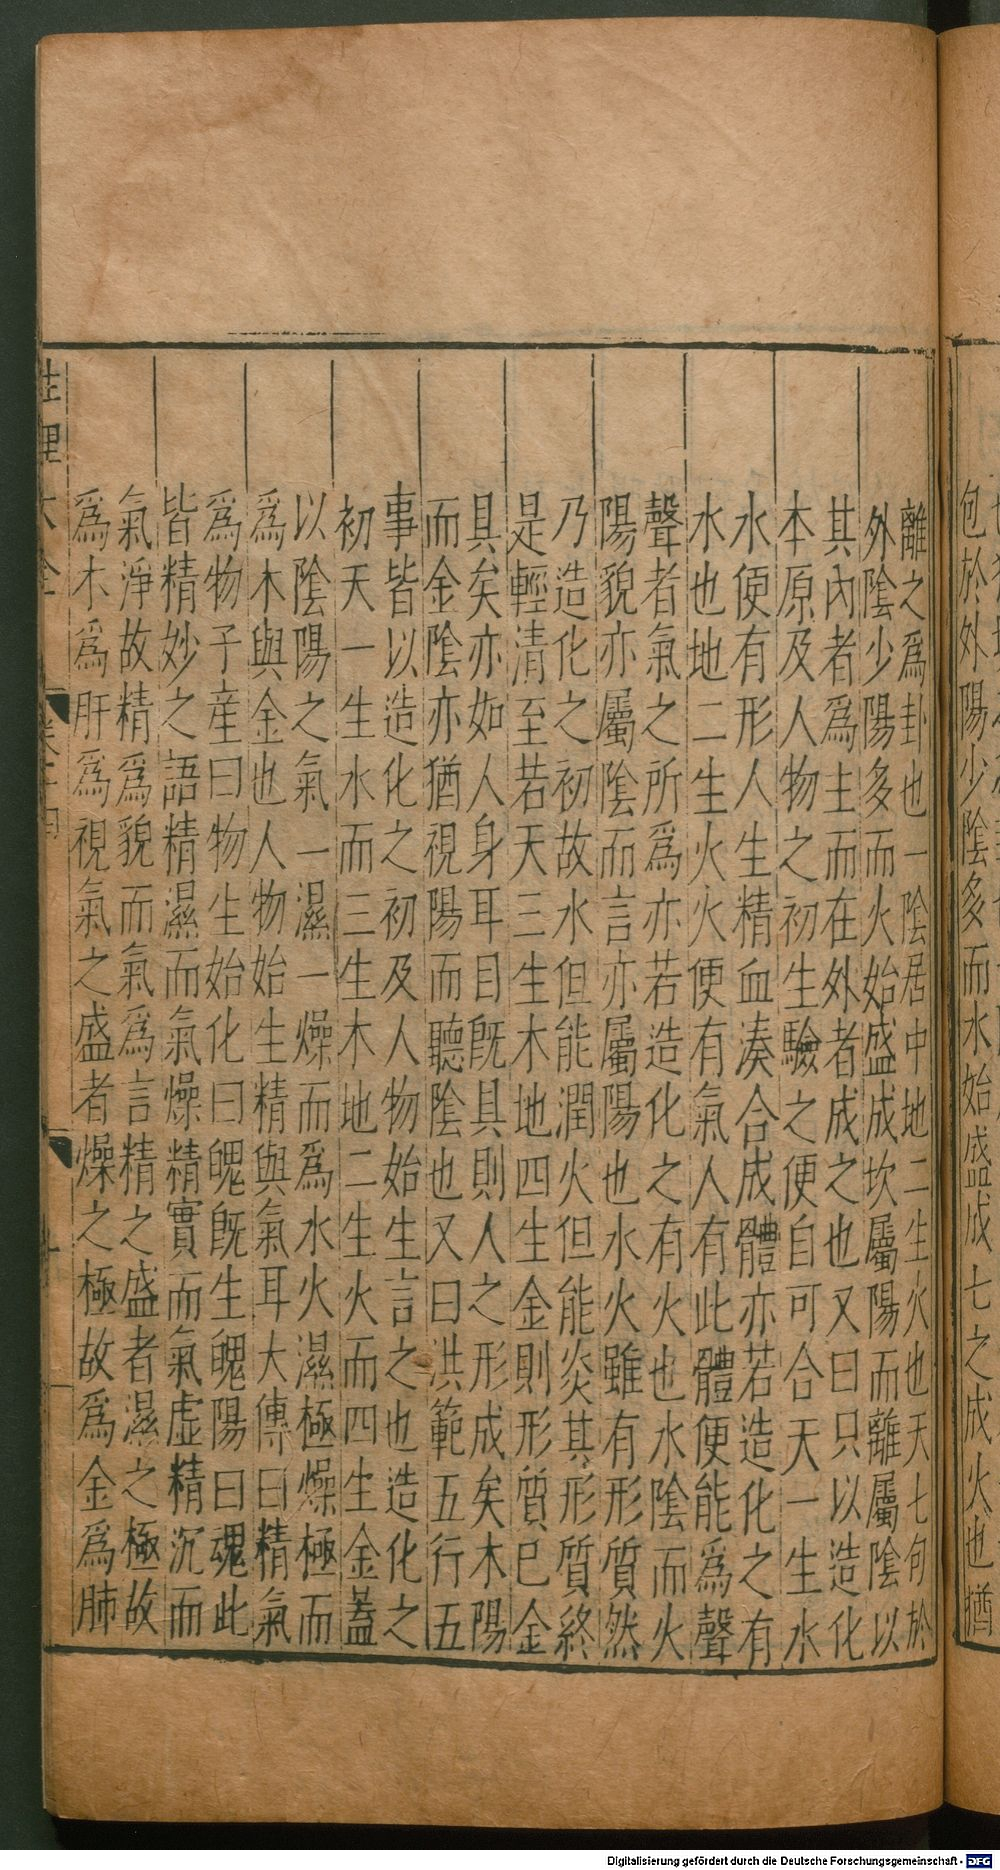 包於外陽少陰多而水始盛成七之成火也猶
離之爲卦也一陰居中地二生火也天七包於
外陰少陽多而火始盛成坎屬陽而離屬陰以
其內者爲主而在外者成之也又曰只以造化
本原及人物之初生驗之便自可合天一生水
水便有形人生精血湊合成體亦若造化之有
水也地二生火火便有氣人有此體便能爲聲
聲者氣之所爲亦若造化之有火也水陰而火
陽貌亦屬陰而言亦屬陽也水火雖有形質然
乃造化之初故水但能潤火但能炎其形質終
是輕清至若天三生木地四生金則形質已金
具矣亦如人身耳目旣具則人之形成矣木陽
而金陰亦猶視陽而聽陰也又曰洪範五行五
事皆以造化之初及人物始生言之也造化之
初天一生水而三生木地二生火而四生金蓋
以陰陽之氣一濕一燥而爲水火濕極燥極而
爲木與金也人物始生精與氣耳大傳曰精氣
爲物子產曰物生始化曰魄旣生魄陽曰魂此
皆精妙之語精濕而氣燥精實而氣虛精沉而
氣淨故精爲貌而氣爲言精之盛者濕之極故
爲木爲肝爲視氣之盛者燥之極故爲金爲肺
性理大全
Digitalisierung gefördert durch die Deutsche Forschungsgemeinschaft - DFG